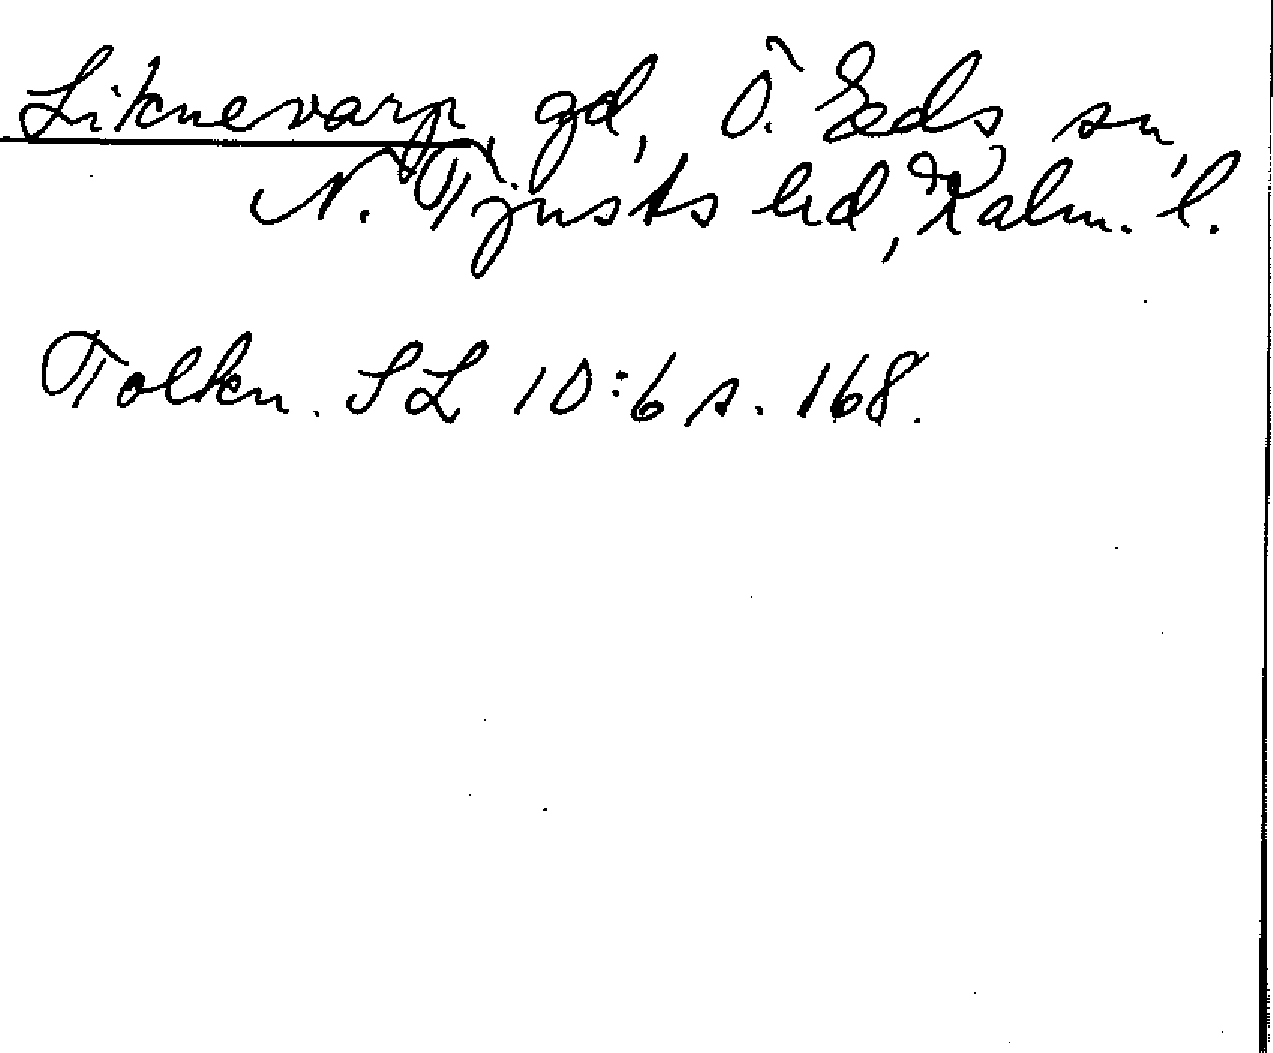 Liknevarp, gd, Ö. Eds sn,
N. Tjusts hd, Kalm. l.
Tolkn. SL 10:6 s. 168.